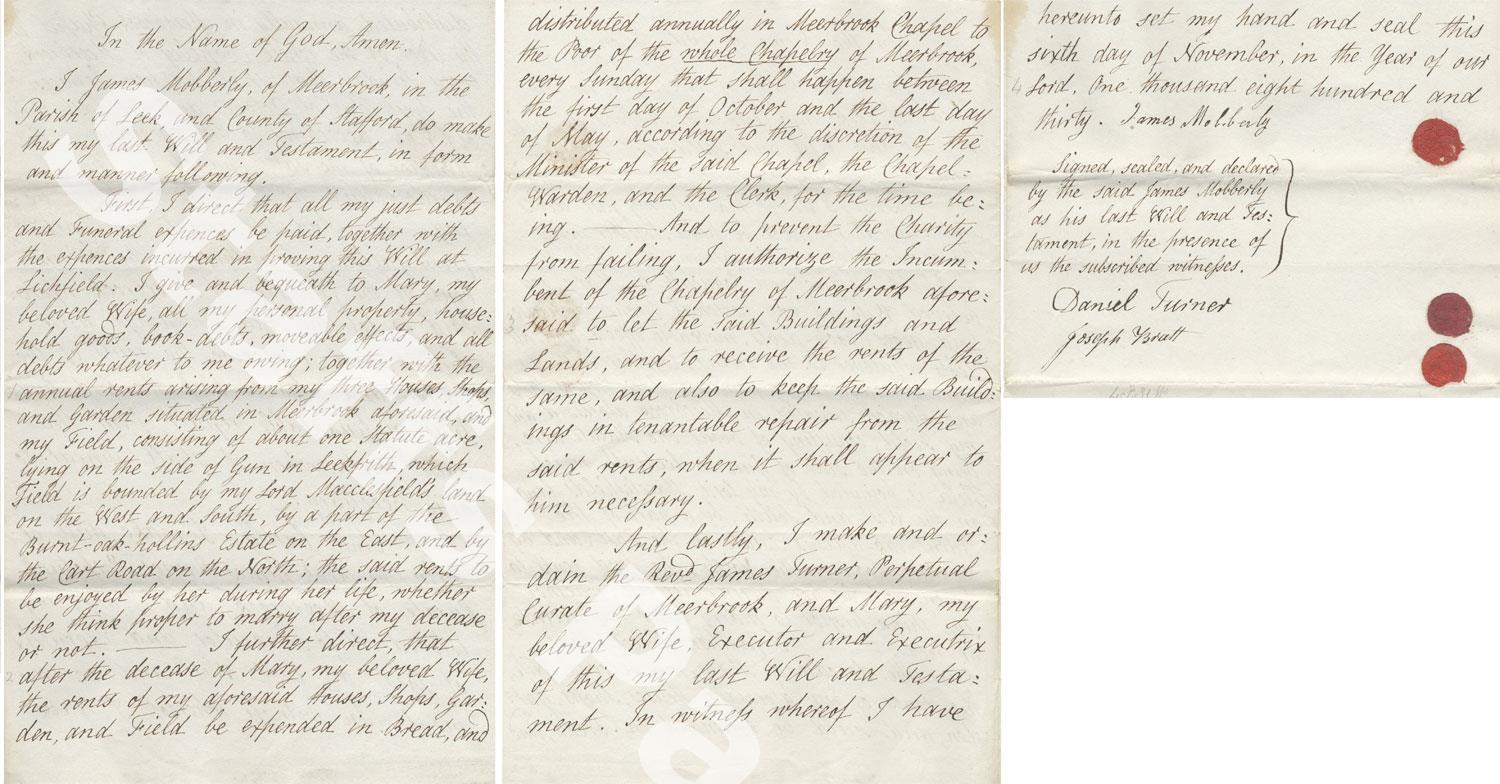 In the Name of God, Amen.
I James Mobberly, of Meerbrook, in the
Parish of Leek and County of Stafford, do make
this my last Will and Testament, in form
and manner following.
First, I direct that all my just debts
and Funeral expences be paid, together with
the expences incurred in proving this Will at
Lichfield. I give and bequeath to Mary, my
beloved Wife, all my personal property, house=
hold goods, book-debts, moveable effects, and all
debts whatever to me owing; together with the
1 annual rents arising from my three Houses, Shops,
and Garden situated in Meerbrook aforesaid, and
my Field, consisting of about one Statute acre,
lying on the side of Gun in Leekfrith, which
Field is bounded by my Lord Macclesfield's land
on the West and South, by a part of the
Burnt-oak-hollins Estate on the East, and by
the Cart Road on the North; the said rents to
be enjoyed by her during her life, whether
she think proper to marry after my decease
or not. —— I further direct, that
2 after the decease of Mary, my beloved Wife,
the rents of my aforesaid Houses, Shops, Gar-
den, and Field be expended in Bread, and
distributed annually in Meerbrook Chapel to
the Poor of the whole Chapelry of Meerbrook,
every Sunday that shall happen between
the first day of October and the last day
of May, according to the discretion of the
Minister of the said Chapel, the Chapel=
Warden, and the Clerk, for the time be=
ing. —— And to prevent the Charity
from failing, I authorize the Incum=
bent of the Chapelry of Meerbrook afore=
3 said to let the said Buildings and
Lands, and to receive the rents of the
same, and also to keep the said Build=
ings in tenantable repair from the
said rents, when it shall appear to
him necessary.
And lastly, I make and or=
dain the Revd James Turner, Perpetual
Curate of Meerbrook, and Mary, my
beloved Wife, Executor and Executrix
of this my last Will and Testa=
ment. In witness whereof I have
hereunto set my hand and seal this
sixth day of November, in the Year of our
4 Lord, One thousand eight hundred and
thirty. James Mobberly
Signed, sealed, and declared
by the said James Mobberly
as his last Will and Tes=
tament, in the presence of
us the subscribed witnesses.
Daniel Turner
Joseph Bratt